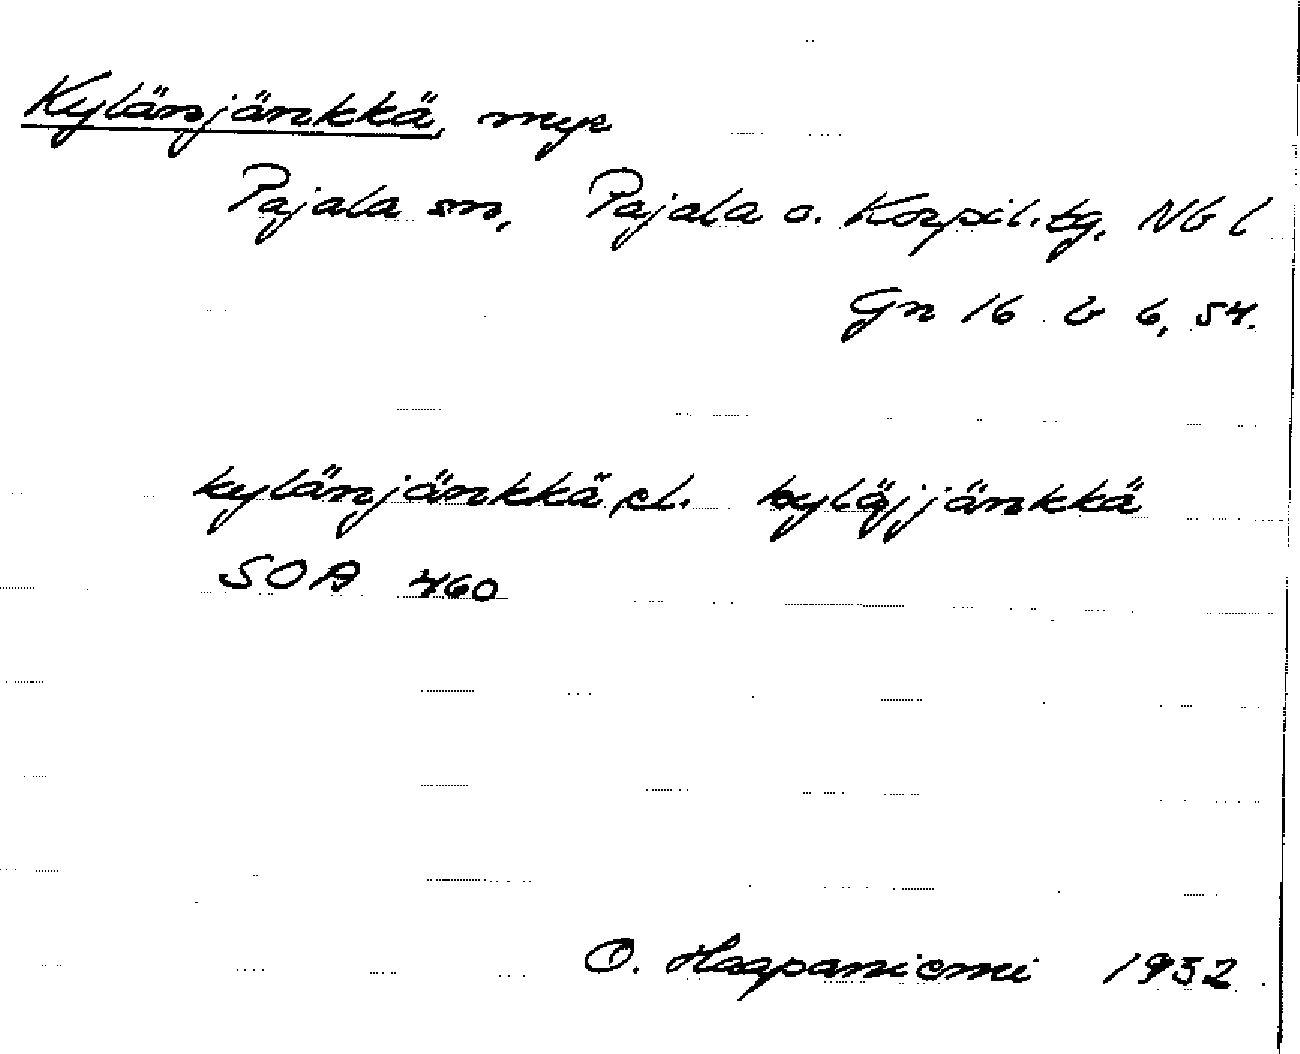 Kylänjänkkä, myr
Pajala sn, Pajala o. Korpil. tg. Nb l
Gn 16 b 6, 54.
kylänjänkkä, el. kyläjjänkkä
SOA 460
O. Haapaniemi 1932